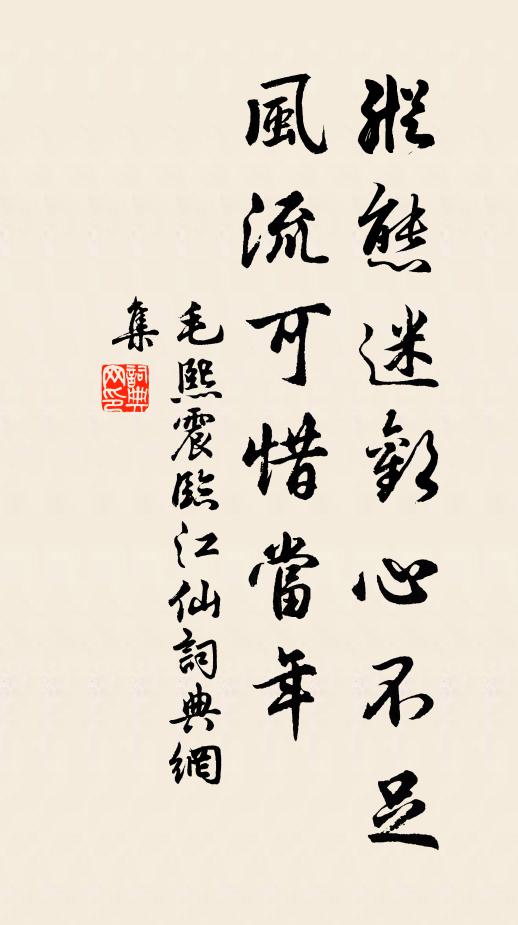 縱態迷歡心不足
風流可惜當年
毛熙震臨江仙詞典網
集
詞典
网印